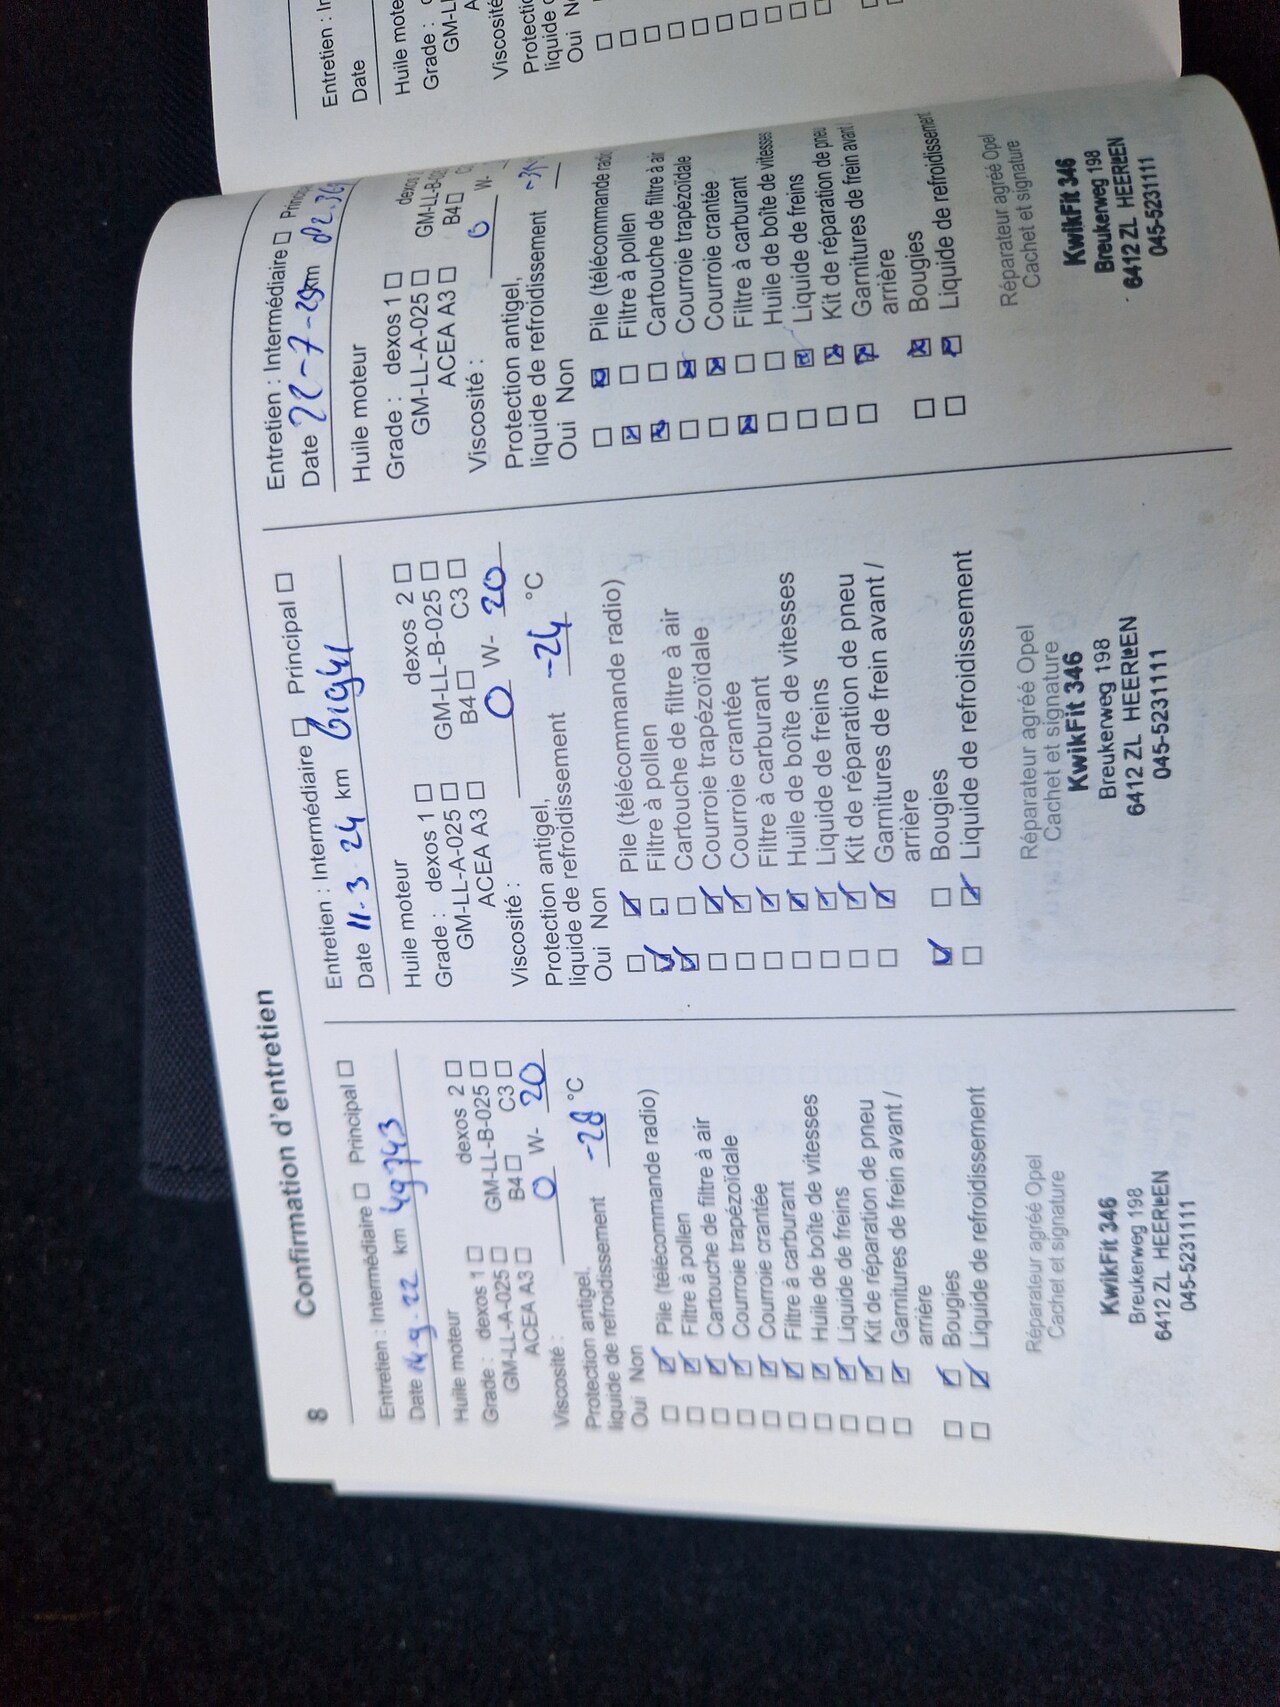 8 Confirmation d'entretien
Entretien : Intermédiaire ☐ Principal ☐
Date 14-9-22 km 49743
Huile moteur
Grade : dexos 1 ☐ dexos 2 ☐
GM-LL-A-025 ☐ GM-LL-B-025 ☐
ACEA A3 ☐ B4 ☐ C3 ☐
Viscosité : 0 W- 20
Protection antigel,
liquide de refroidissement -28 °C
Oui Non
☐ ☑ Pile (télécommande radio)
☐ ☑ Filtre à pollen
☐ ☑ Cartouche de filtre à air
☐ ☑ Courroie trapézoïdale
☐ ☑ Courroie crantée
☐ ☑ Filtre à carburant
☐ ☑ Huile de boîte de vitesses
☐ ☑ Liquide de freins
☐ ☑ Kit de réparation de pneu
☐ ☑ Garnitures de frein avant /
arrière
☐ ☑ Bougies
☐ ☑ Liquide de refroidissement
Réparateur agréé Opel
Cachet et signature
KwikFit 346
Breukerweg 198
6412 ZL HEERLEN
045-5231111
Entretien : Intermédiaire ☐ Principal ☐
Date 11-3-24 km 61941
Huile moteur
Grade : dexos 1 ☐ dexos 2 ☐
GM-LL-A-025 ☐ GM-LL-B-025 ☐
ACEA A3 ☐ B4 ☐ C3 ☐
Viscosité : 0 W- 20
Protection antigel,
liquide de refroidissement -24 °C
Oui Non
☐ ☑ Pile (télécommande radio)
☑ ☐ Filtre à pollen
☑ ☐ Cartouche de filtre à air
☐ ☑ Courroie trapézoïdale
☐ ☑ Courroie crantée
☐ ☑ Filtre à carburant
☐ ☑ Huile de boîte de vitesses
☐ ☑ Liquide de freins
☐ ☑ Kit de réparation de pneu
☐ ☑ Garnitures de frein avant /
arrière
☑ ☐ Bougies
☐ ☑ Liquide de refroidissement
Réparateur agréé Opel
Cachet et signature
KwikFit 346
Breukerweg 198
6412 ZL HEERLEN
045-5231111
Entretien : Intermédiaire ☐
Date 22-7-25 km
Huile moteur
Grade : dexos 1 ☐ dexos
GM-LL-A-025 ☐
ACEA A3 ☐ B4 ☐
Viscosité : 0 W-
Protection antigel,
liquide de refroidissement
Oui Non
☐ ☑ Pile (télécommande
☑ ☐ Filtre à pollen
☑ ☐ Cartouche de filtre à air
☐ ☑ Courroie trapézoïdale
☐ ☑ Courroie crantée
☑ ☐ Filtre à carburant
☐ ☐ Huile de boîte de vitesses
☐ ☑ Liquide de freins
☐ ☑ Kit de réparation de pneu
☐ ☑ Garnitures de frein avant /
arrière
☐ ☑ Bougies
☐ ☑ Liquide de refroidissement
Réparateur agréé Opel
Cachet et signature
KwikFit 346
Breukerweg 198
6412 ZL HEERLEN
045-5231111
Entretien :
Date
Grade :
Viscosité
Oui